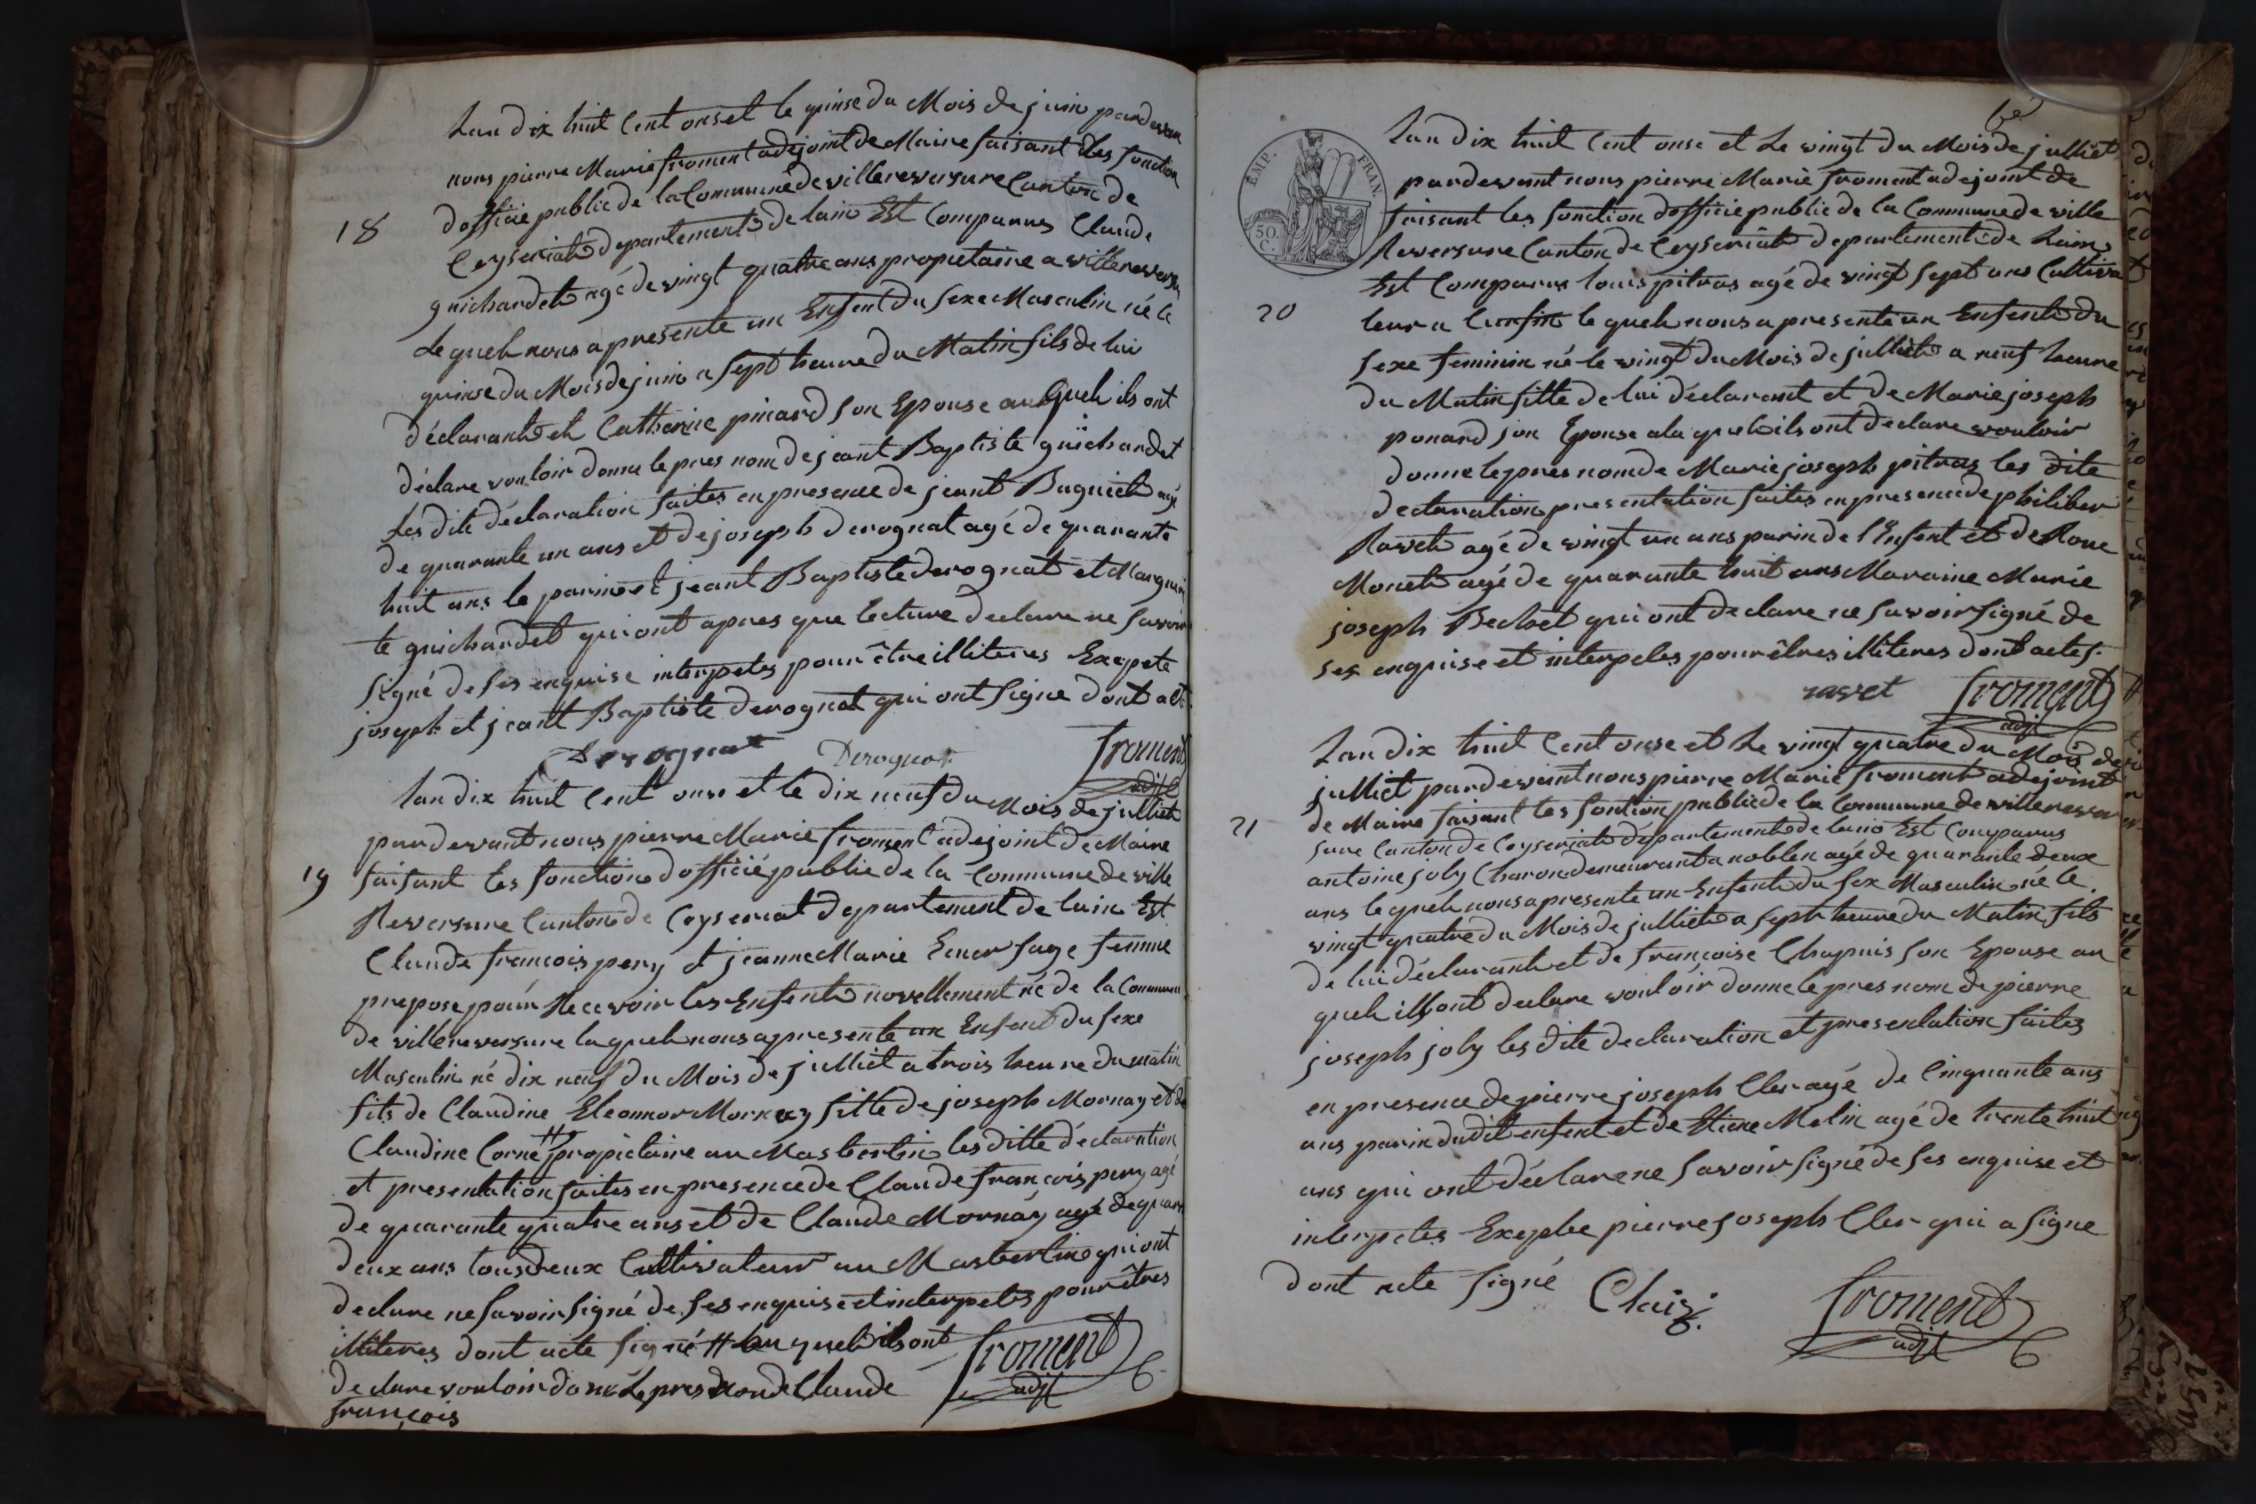 18
Lan dix huit Cent onse et le quinse du Mois de juin pardevan
nous pierre Marie froment adejoint de Maire faisant les fonction
dofficié public de la Commune de villereversure Canton de
Ceyseriat departement de lain Est Comparus Claude
guichardet agé de vingt quatre ans propietaire a villerevers
le queh nous a presente un Enfent du sexe Masculin né le
quinse du Mois de juin a sept heure du Matin fils de lui
déclarant et Catherine pinard son Epouse au queh ils ont
déclare vouloir donne le pres nom de jeant Baptiste guichardet
Les dite déclaration faites en presence de jeant Buguieh agé
de quarante un ans et de joseph derognat agé de quarante
huit ans le parin et jeant Baptiste derognat et Margueri
te guichardet qui ont apres que lecture declare ne savoir
signé de ses enquise interpetes pour être illiteres Exepete
joseph et jeant Baptiste derognat qui ont signe dont act
Derognat Derognat froment
adjt
19
Lan dix huit Cent onse et le dix neuf du Mois de julliet
pardevant nous pierre Marie froment adejoint de Maire
faisant les fonction dofficié public de la Commune de ville
Reversure Canton de Ceyseriat departement de lain Est
Claude francois pery et jeanne Marie Ecner sage femme
prepose pour Recevoir les Enfent novellement né de la Commune
de villereversure laqueh nous a presente un Enfent du sexe
Masculin né dix neuf du Mois de julliet a trois heure du matin
fils de Claudine Eleonnor Mornay fille de joseph Mornay et de
Claudine Corne # propietaire au Masbertin les ditte déclaration
et presentation faites en presence de Claude francois pery agé
de quarante quatre ans et de Claude Mornay agé de quar
deux ans tous deux Cultivateur au Masbertin qui ont
declare ne savoir signé de ses enquise et interpetes pour êtres
illiteres dont acte signé # au queh ils ont froment
adjt
declare vouloir donne le pres nom de Claude
francois
EMP. FRAN.
50. C.
20
Lan dix huit Cent onse et Le vingt du Mois de julliet
pardevant nous pierre Marie froment adejoint de
faisant les fonction dofficie public de la Commune de ville
Reversure Canton de Ceyseriat departement de Lain
Est Comparus louis pitras agé de vingt sept ans Cultiva
teur a le queh nous a presente un Enfent du
sexe feminin né le vingt du Mois de julliet a neuf heure
du Matin fille de lui déclarant et de Marie joseph
ponard son Epouse ala queh ils ont declare vouloir
donne le pres nom de Marie joseph pitras les dite
declaration presentation faites en presence de philiber
Ravet agé de vingt un ans parin de l'Enfent et de Rone
Moneth agé de quarante huit ans Maraine Marie
joseph Bechet qui ont declare ne savoir signé de
ses enquise et interpeles pour êtres illiteres dont actes.
ravet froment
adjt
21
Lan dix huit Cent onse et Le vingt quatre du Mois de
julliet pardevant nous pierre Marie froment adejoint
de Maire faisant les fontion public de la Commune de villerever
sure Canton de Ceyseriat departement de lain Est Comparus
antoine joly Charon demeurant a noblen agé de quarante deux
ans le queh nous a presente un Enfent du sex Masculin né le
vingt quatre du Mois de julliet a seph heure du Matin fils
de lui déclarant et de françoise Chapuis son Epouse au
queh ills ont declare vouloir donne le pres nom de pierre
joseph joly les dite declaration et presentation faites
en presence de pierre joseph Cler agé de Cinquante ans
ans parin dudit enfent et de Etiene Melin agé de trente huit
ans qui ont déclare ne savoir signé de ses enquise et
interpetes Exeptee pierre joseph Cler qui a signe
dont acte signé Claiz. froment
adjt